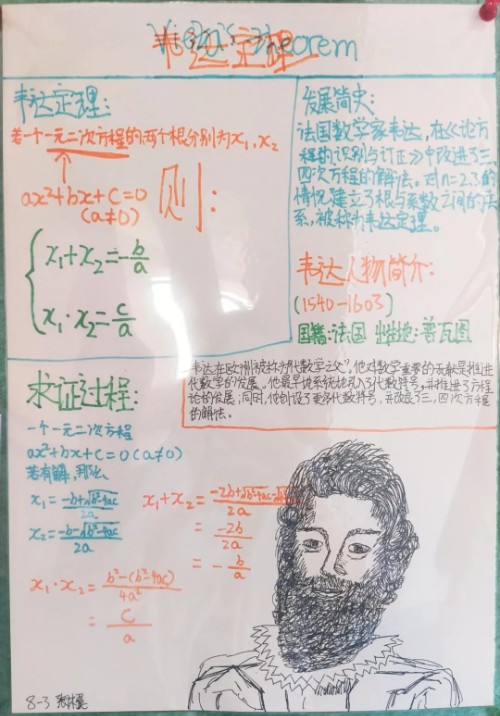 Vieta's Theorem
韦达定理
韦达定理:
若一个一元二次方程的两个根分别为x₁,x₂
ax²+bx+c=0
(a≠0)
则:
x₁+x₂=-b/a
x₁·x₂=c/a
发展简史:
法国数学家韦达,在《论方
程的识别与订正》中改进了三
四次方程的解法。对n=2.3的
情况,建立了根与系数之间的关
系,被称为韦达定理。
韦达人物简介:
(1540-1603)
国籍:法国 出生地:普瓦图
韦达在欧洲被称为"代数学之父"。他对数学重要的贡献是推进
代数学的发展。他最早地系统地引入了代数符号,并推进了方程
论的发展;同时,他创设了更多代数符号,并改良了三,四次方程
的解法。
求证过程:
一个一元二次方程
ax²+bx+c=0(a≠0)
若有解,那么
x₁=(-b+√(b²-4ac))/2a
x₂=(-b-√(b²-4ac))/2a
x₁+x₂=(-2b+√(b²-4ac)-√
/2a
=-2b/2a
=-b/a
x₁·x₂=(b²-(b²-4ac))/4a²
=c/a
8-3